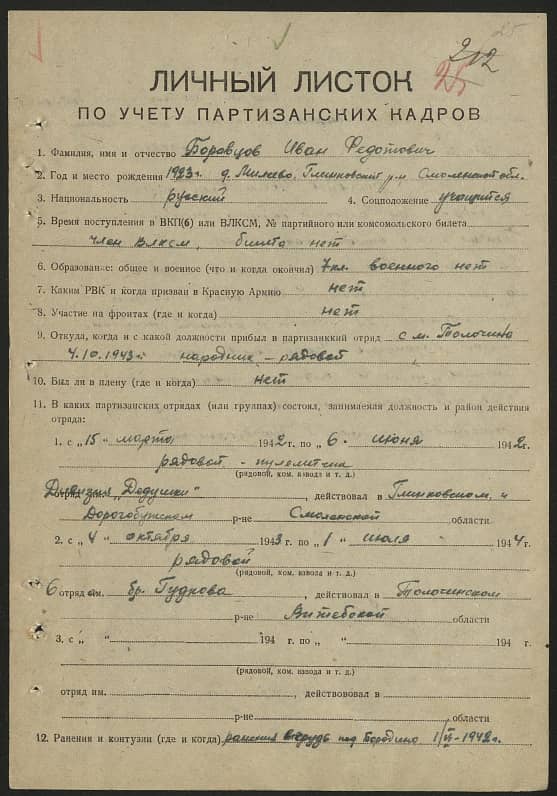 25
212
25
ЛИЧНЫЙ ЛИСТОК
ПО УЧЕТУ ПАРТИЗАНСКИХ КАДРОВ
1. Фамилия, имя и отчество Боравцов Иван Федотович
2. Год и место рождения 1923г. д. Милеево, Глинковский р-н Смоленской обл.
3. Национальность русский 4. Соцположение учащийся
5. Время поступления в ВКП(б) или ВЛКСМ, № партийного или комсомольского билета
член ВЛКСМ, билета нет
6. Образование: общее и военное (что и когда окончил) 7кл. военного нет
7. Каким РВК и когда призван в Красную Армию нет
8. Участие на фронтах (где и когда) нет
9. Откуда, когда и с какой должности прибыл в партизанский отряд с м. Толочина
4.10.1943г. народник – рядовой
10. Был ли в плену (где и когда) нет
11. В каких партизанских отрядах (или группах) состоял, занимаемая должность и район действия
отряда:
1. с „15" марта 1942г. по „6. июня 1942г.
рядовой - пулеметчик
(рядовой, ком. взвода и т. д.)
Дивизия „Дедушки" , действовал в Глинковском, и
Дорогобужском р-не Смоленской области
2. с „4" октября 1943 г. по „1" июля 1944 г.
рядовой
(рядовой, ком. взвода и т. д.)
6 отряд им. бр. Гудкова , действовал в Толочинском
р-не Витебской области
3. с „ " 194 г. по „ " 194 г.
(рядовой, ком. взвода и т. д.)
отряд им. , действововал в
р-не области
12. Ранения и контузии (где и когда) ранения в грудь под Бородино 1/VI-1942г.